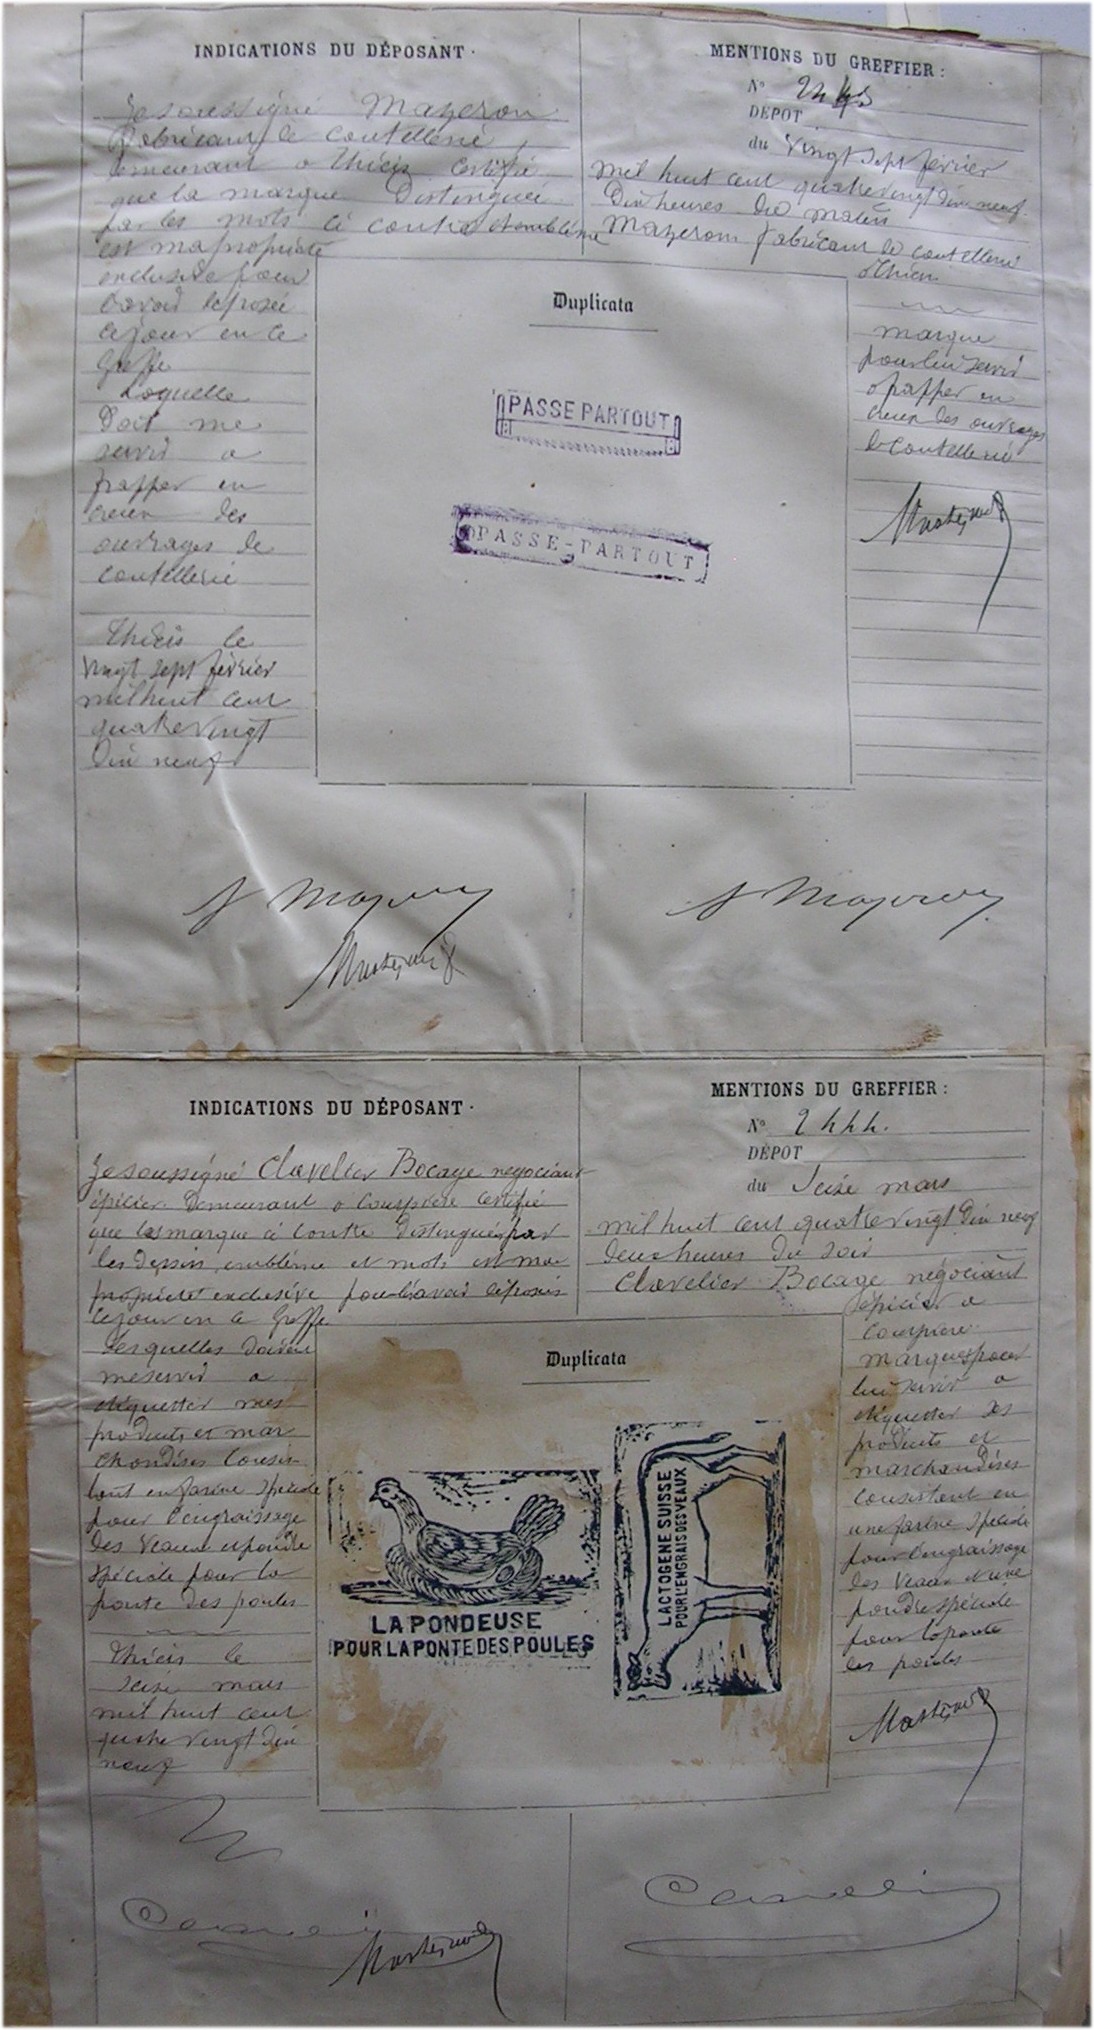 INDICATIONS DU DÉPOSANT.
Je soussigné Mazeron
fabricant de coutellerie
demeurant a Thiers certifie
que la marque Distinguée
par les mots ci contre et emblème
est ma propriété
exclusive pour
l'avoir déposée
ce jour en ce
Greffe
Laquelle
Doit me
servir a
frapper en
creux des
ouvrages de
coutellerie
Thiers le
vingt sept février
mil huit cent
quatre vingt
dix neuf
MENTIONS DU GREFFIER :
N° 2443
DÉPOT
du vingt sept février
mil huit cent quatre vingt dix neuf
Dix heures du matin
Mazeron fabricant de coutellerie
a Thiers
marque
pour lui servir
a frapper en
creux des ouvrages
de coutellerie
Duplicata
PASSE PARTOUT
PASSE-PARTOUT
Mazeron
Mazeron
INDICATIONS DU DÉPOSANT.
Je soussigné Clavelier Bocage négociant
épicier Demeurant a Courpière certifie
que les marque ci contre Distinguées par
les dessins emblème et mots est ma
propriété exclusive pour l'avoir déposés
ce jour en ce Greffe
Lesquelles doivent
me servir a
étiquetter mes
produits et mar
chandises consis
tant en farine spéciale
pour l'engraissage
des Veaux et poudre
spéciale pour la
ponte des poules
Thiers le
seize mars
mil huit cent
quatre vingt dix
neuf
MENTIONS DU GREFFIER :
N° 2444.
DÉPOT
du Seize mars
mil huit cent quatre vingt dix neuf
deux heures du soir
Clavelier Bocage négociant
épicier a
Courpière
marques pour
lui servir a
étiquetter des
produits et
marchandises
consistant en
une farine spéciale
pour l'engraissage
des Veaux et une
poudre spéciale
pour la ponte
des poules
Duplicata
LA PONDEUSE
POUR LA PONTE DES POULES
LACTOGENE SUISSE
POUR L'ENGRAIS DES VEAUX